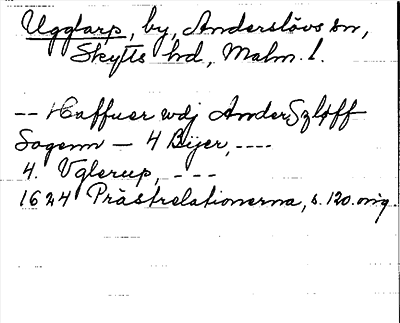 Ugglarp, by, Anderslövs sn,
Skytts hd, Malm. l.
-- Haffuer wdj AnderSzløff
Sogenn - 4 Bÿer, ----
4. Vglerup, - - -
1624 Prästrelationerna, s. 120. orig.